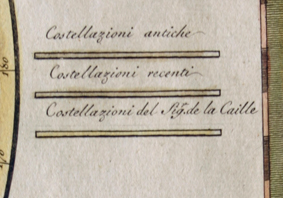 Costellazioni antiche
Costellazioni recenti
Costellazioni del Sig. de la Caille
180